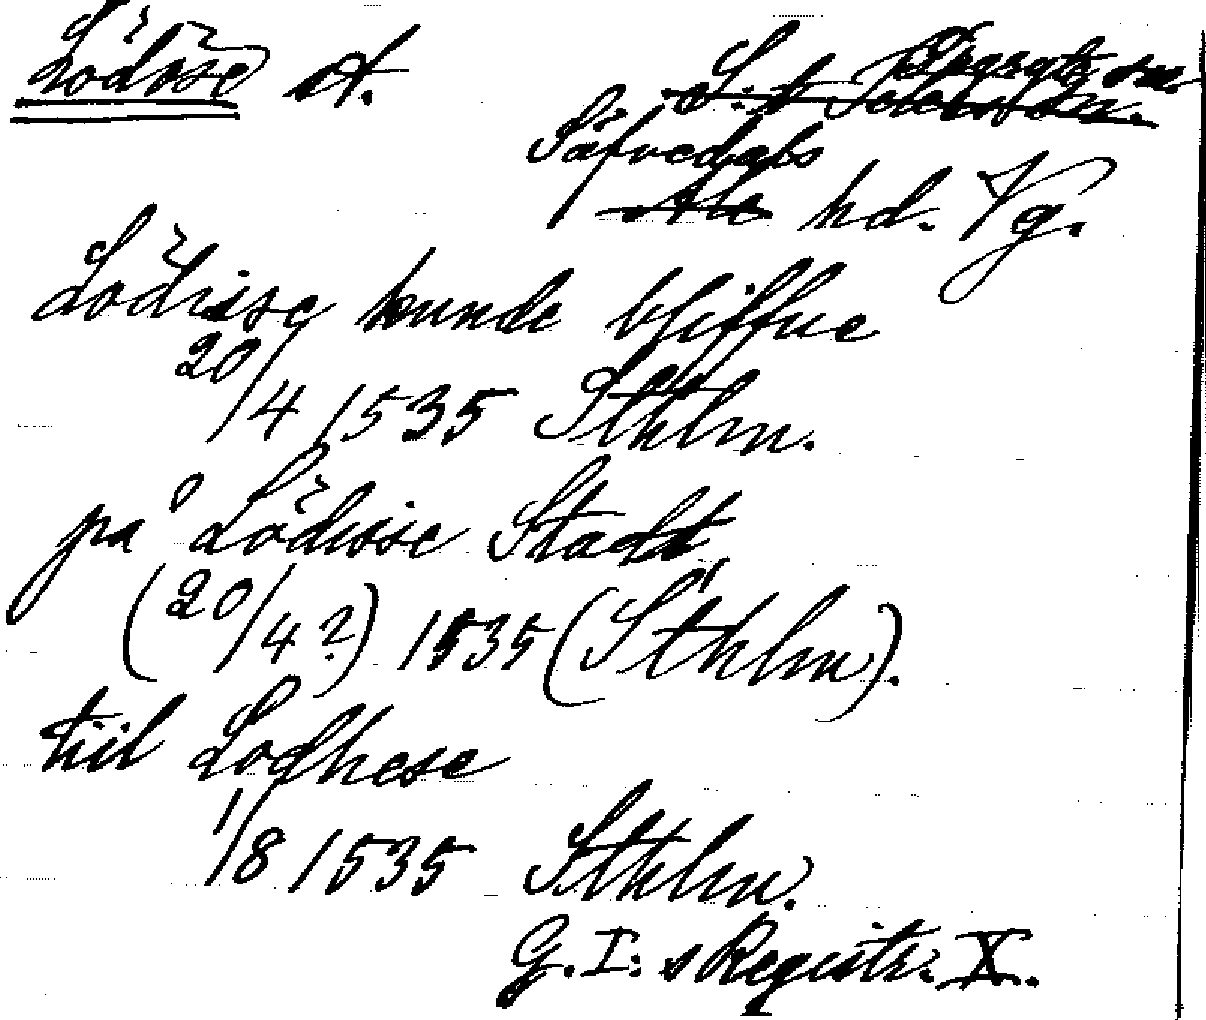 Lödöse st.
S:t Peders sn.
Säfvedals
Ale hd. Vg.
Lödisse kunde bliffue
20/4 1535 Sthlm.
på Lödisse Stadt
(20/4?) 1535 (Sthlm).
tiil Lodhese
1/8 1535 Sthlm.
G. I:s Registr. X.